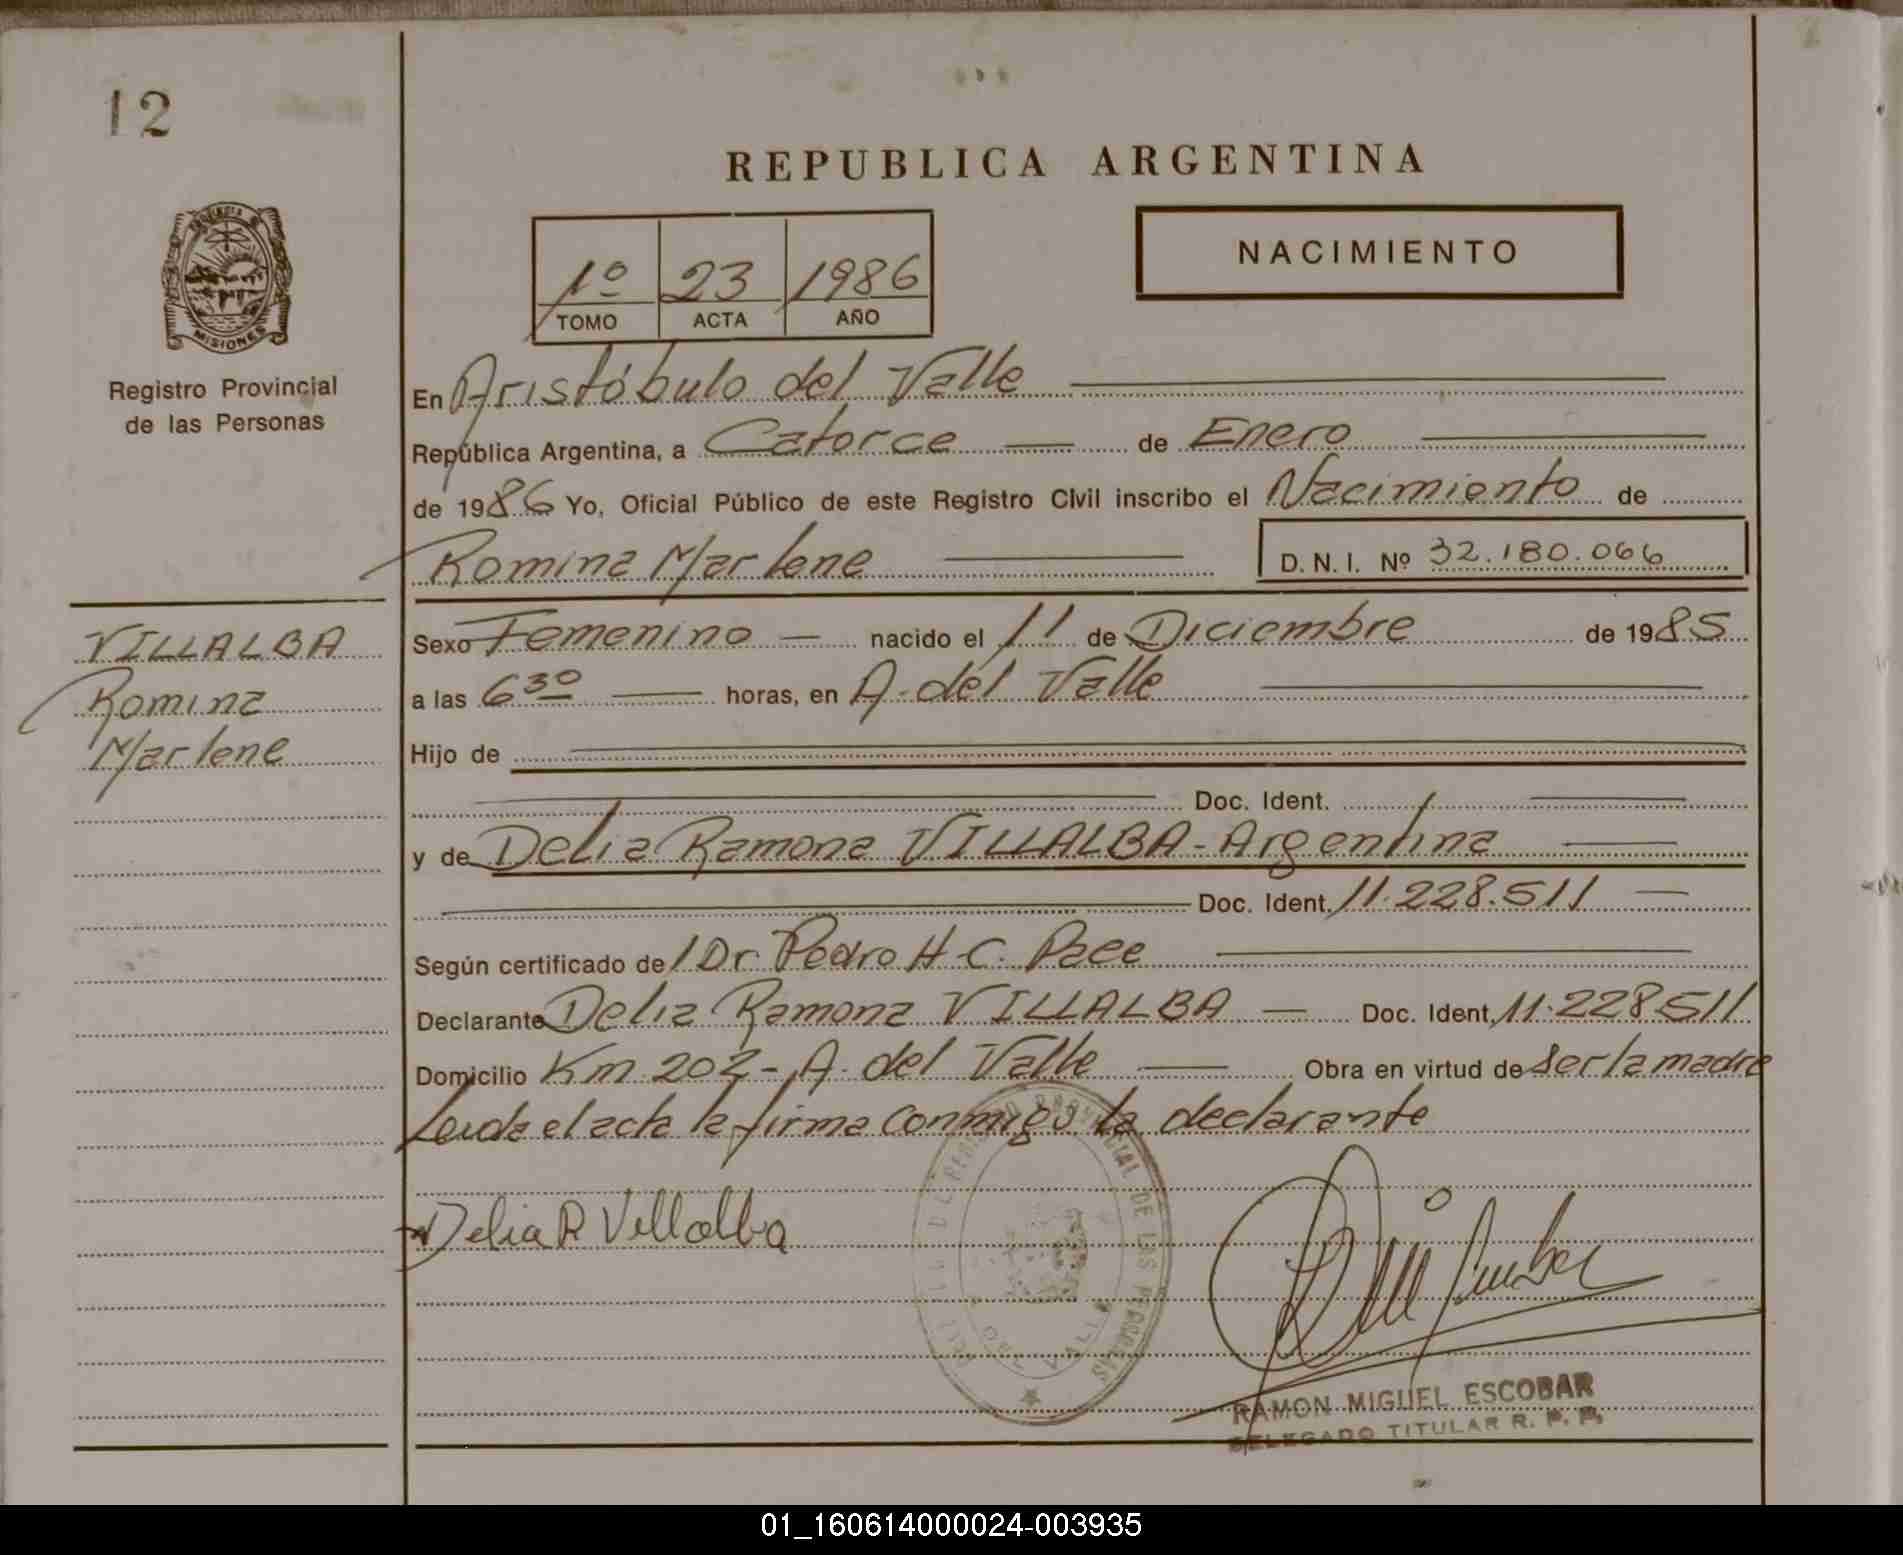 12
REPUBLICA ARGENTINA
NACIMIENTO
1º 23 1986
TOMO ACTA AÑO
MISIONES
Registro Provincial
de las Personas
En Aristóbulo del Valle
República Argentina, a Catorce de Enero
de 1986 Yo, Oficial Público de este Registro Civil inscribo el Nacimiento de
Romina Marlene D.N.I. Nº 32.180.066
VILLALBA
Romina
Marlene
Sexo Femenino nacido el 11 de Diciembre de 1985
a las 6 30 horas, en A. del Valle
Hijo de
Doc. Ident.
y de Delia Ramona VILLALBA - Argentina
Doc. Ident. 11.228.511
Según certificado del Dr. Pedro H. C. Pace
Declarante Delia Ramona VILLALBA Doc. Ident. 11.228.511
Domicilio Km 202 - A. del Valle Obra en virtud de ser la madre
Leida el acta la firma conmigo la declarante
Delia R Villalba
PROVINCIAL DE LAS PERSONAS
VALLE
RAMON MIGUEL ESCOBAR
DELEGADO TITULAR R. P. P.
01_160614000024-003935